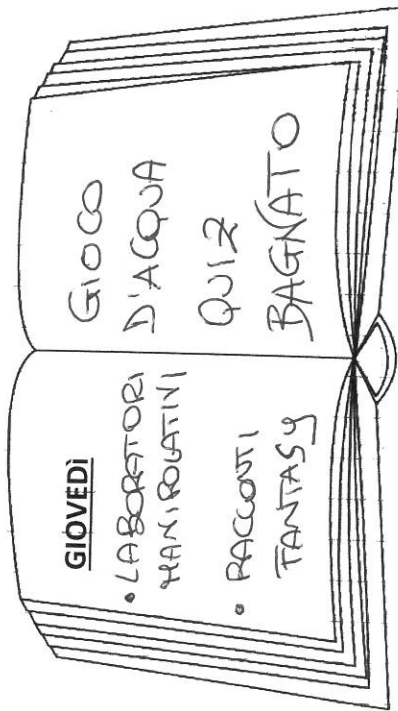 GIOVEDÌ
• LABORATORI
MANIPOLATIVI
• RACCONTI
FANTASY
GIOCO
D'ACQUA
QUIZ
BAGNATO